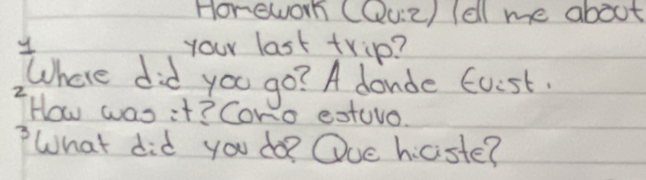 Homework (Quiz) Tell me about
1 your last trip?
Where did you go? A donde fuist.
2 How was it? Como estuvo.
3 What did you do? Que hiciste?